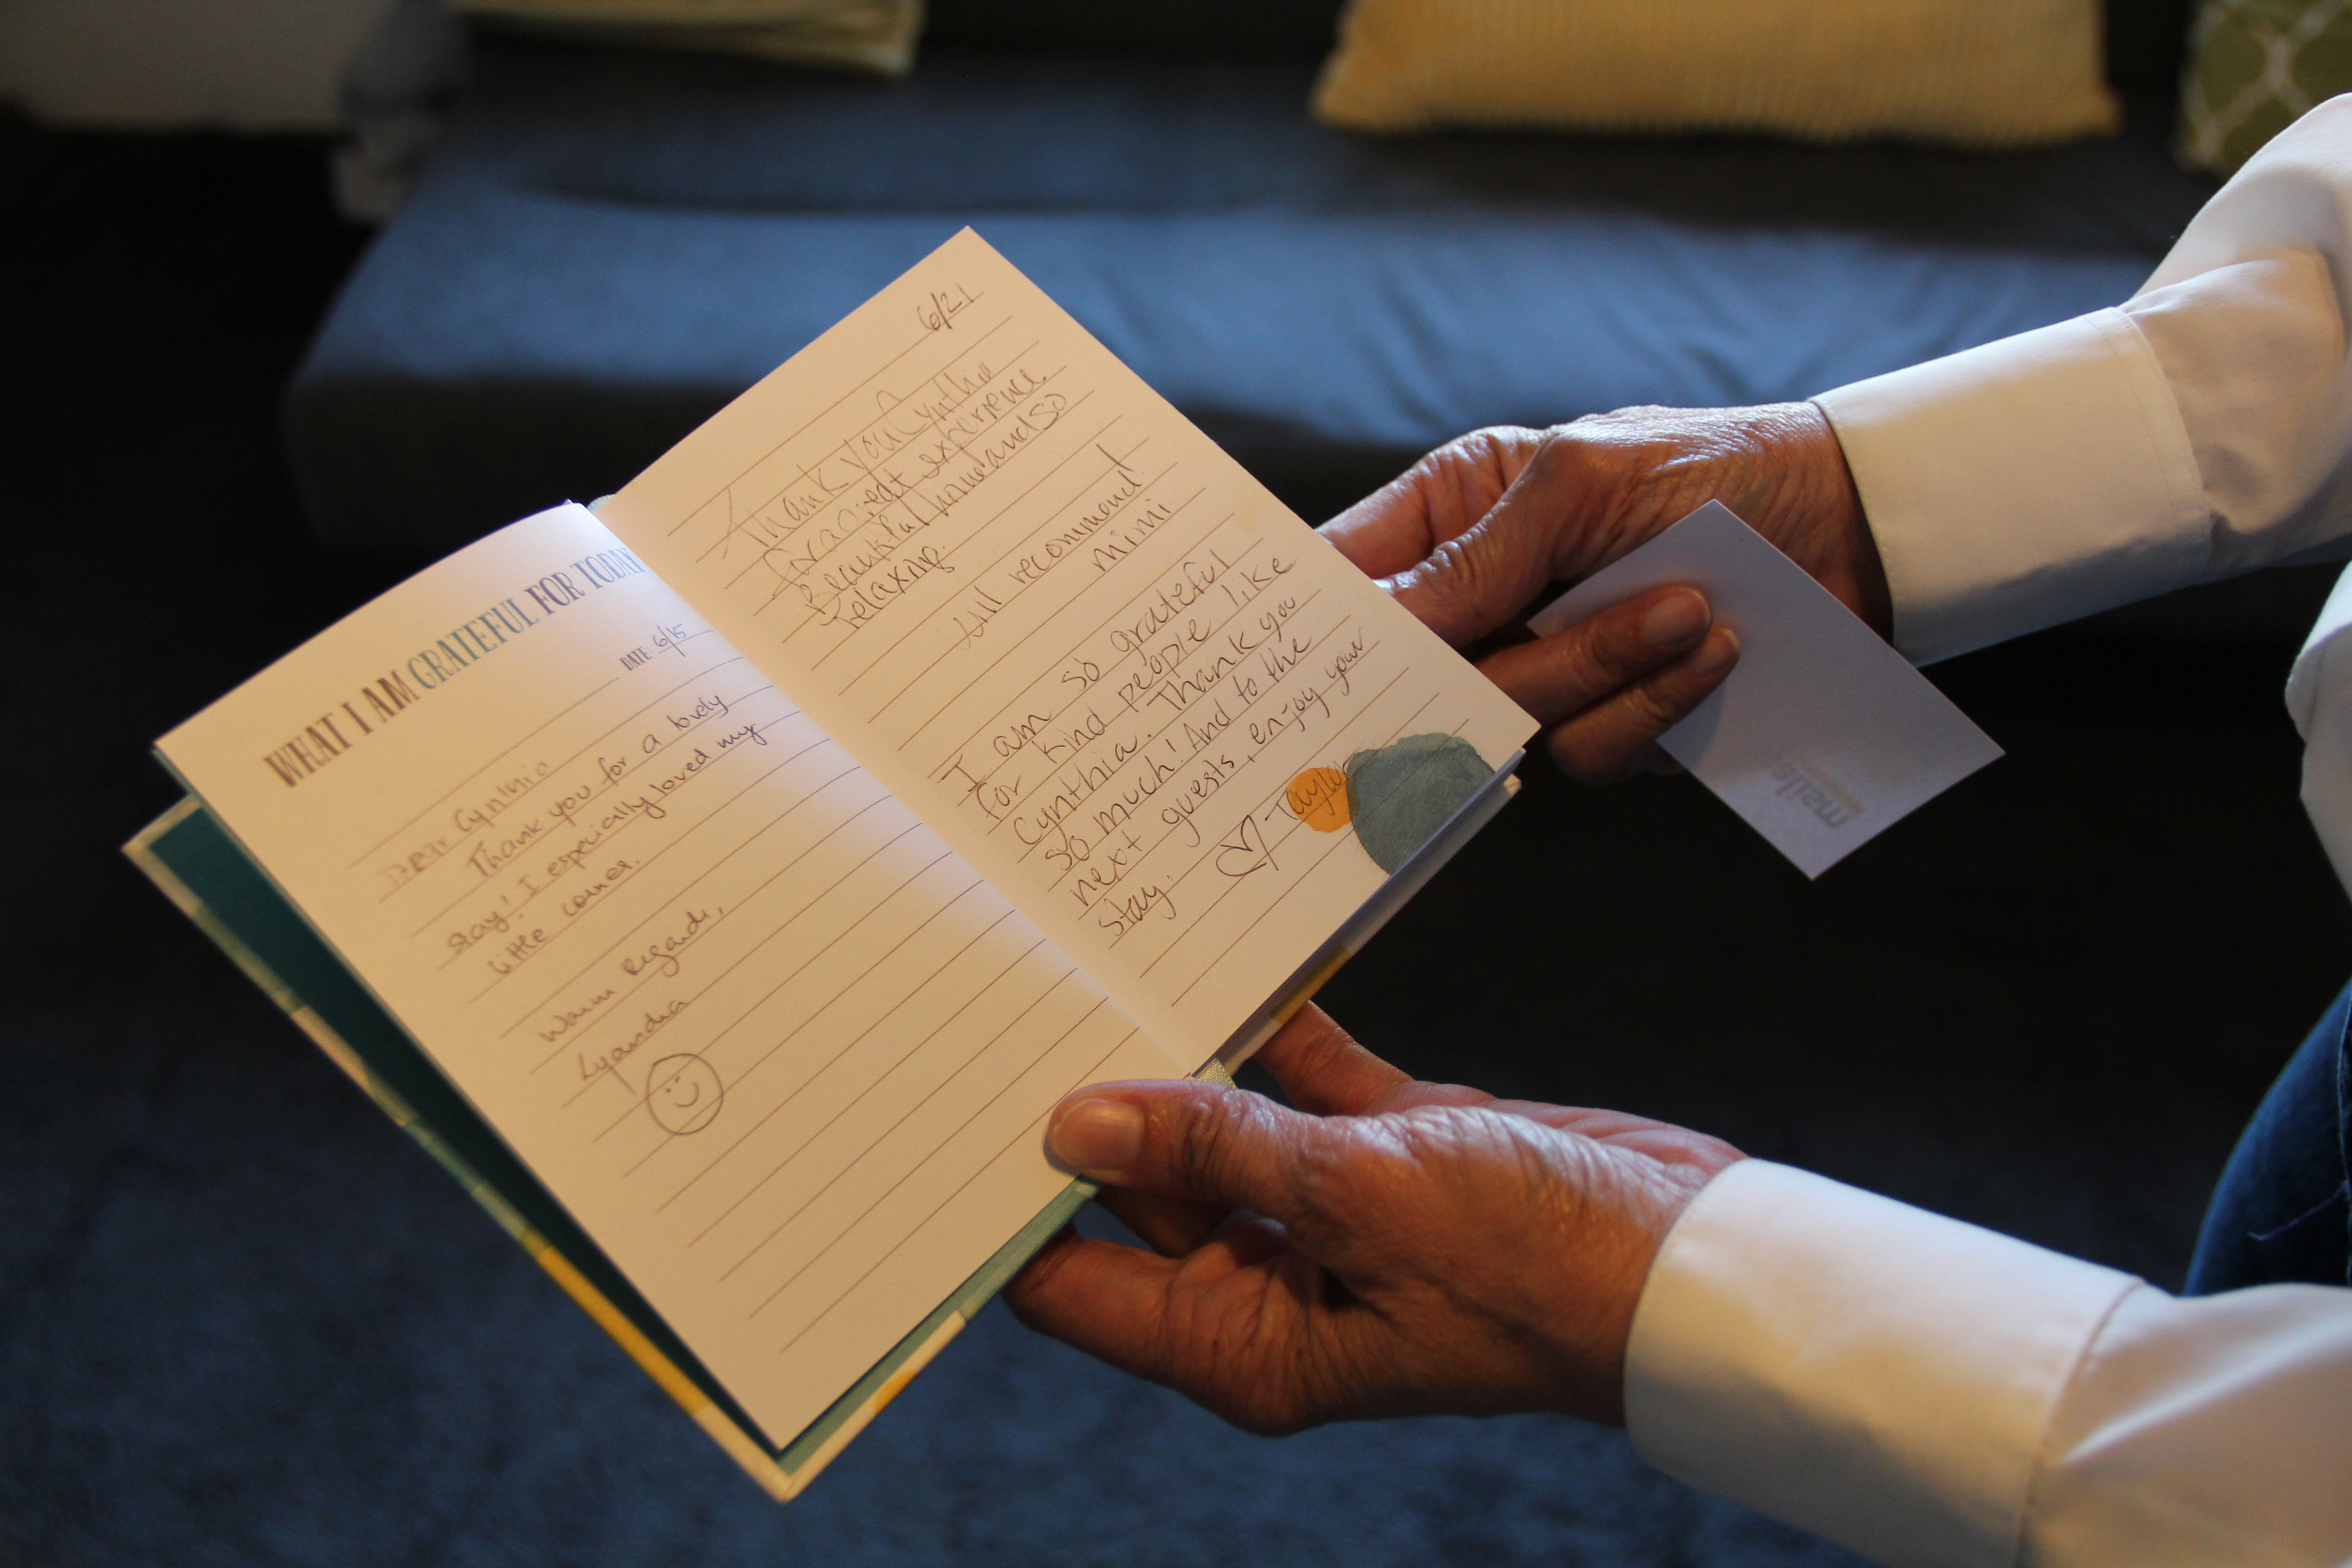 WHAT I AM GRATEFUL FOR TODAY
DATE: 6/15
Dear Cynthia
Thank you for a lovely
stay! I especially loved my
little corner.
Warm Regards,
Lyandra
6/21
Thank you Cynthia
for a great experience.
Beautiful home and so
relaxing.
Will recommend!
Mimi
I am so grateful
for kind people like
Cynthia. Thank you
so much! And to the
next guests, enjoy your
stay.
- Tayler